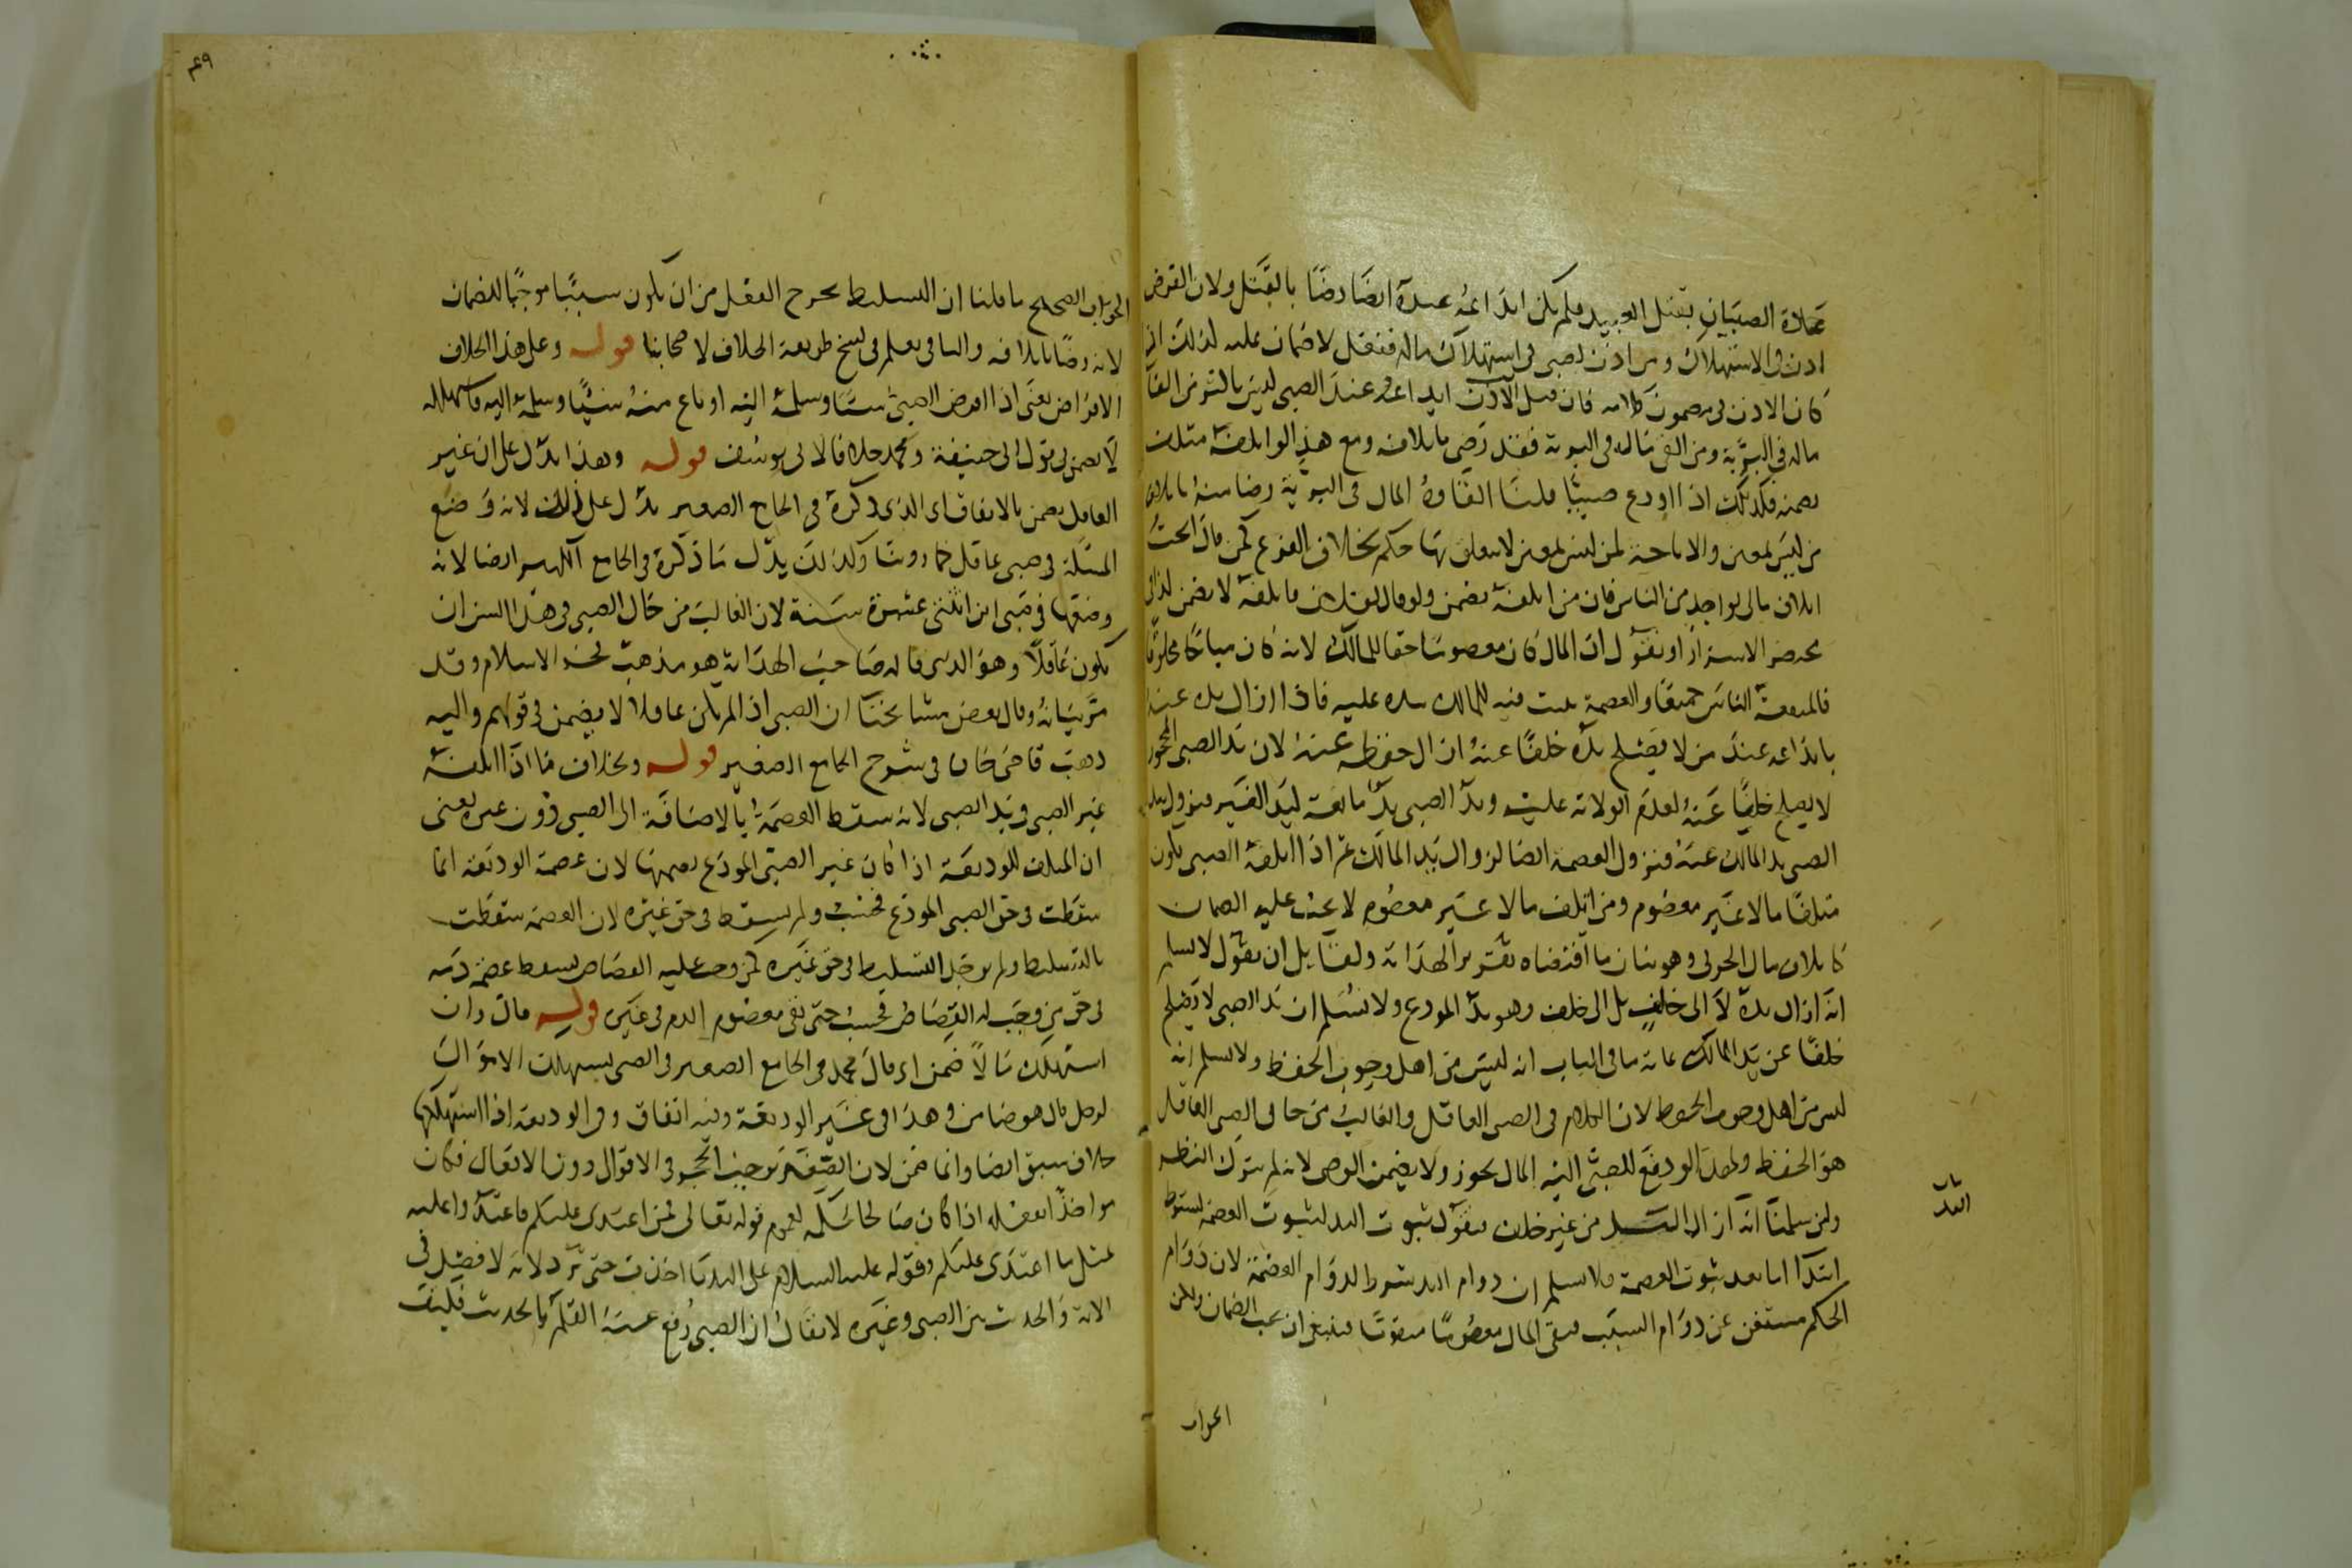 عادة الصبيان بقتل العبيد فلم يكن ايداعه عبده ايضا رضا بالقتل ولان القرض
اذن في الاستهلاك ومن اذن لصبي في استهلاك ماله ففعل لا ضمان عليه لذلك
كان الاذن في مضمون كلامه فان قيل الاذن ايداعه عند الصبي ليس بالتوى من القا
ماله في البرية ومن القى ماله في البرية فقد رضي باتلافه ومع هذا لو اتلفه متلف
يضمنه فكذلك اذا اودع صبيا قلنا القاؤه المال في البرية رضا منه باتلاف
من ليس بمعين والاباحة لمن ليس بمعين لا يتعلق بها حكم بخلاف الفرع كمن قال ابحت
اتلاف مالي لواحد من الناس فان من اتلفه يضمن ولو قال لفلان فاتلفه لا يضمن
او نقول ان المال كان معصوما حقا للمالك لانه كان مباحا مخلوقا
لمنفعة الناس جميعا والعصمة تثبت فيه للمالك بيده عليه فاذا ازال يده عنه
بايداعه عند من لا يصلح يده خلفا عنه ازال حفظه عنه لان يد الصبي المحجور
لا يصلح خلفا عنه لعدم الولاية عليه ويد الصبي يد مانعة ليد الغير فيزول بيد
الصبي يد المالك عنه فتزول العصمة ايضا لزوال يد المالك ثم اذا اتلفه الصبي يكون
متلفا مالا غير معصوم ومن اتلف مالا غير معصوم لا يجب عليه الضمان
كاتلاف مال الحربي وهو بيان ما اقتضاه تقرير الهداية ولقايل ان يقول لا نسلم
انه ازال يده لا الى خلف بل الى خلف وهو يد المودع ولا نسلم ان يد الصبي لا يصلح
خلفا عن يد المالك غاية ما في الباب انه ليس من اهل وجوب الحفظ ولا نسلم انه
ليس من اهل وجوب الحفظ لان الكلام في الصبي العاقل والغالب من حال الصبي العاقل
هو الحفظ ولهذا لو دفع للصبي اليه المال يجوز ولا يضمن الوصي لانه لم يترك النظر
ولين سلمنا انه ازال اليد من غير خلف فنقول ثبوت اليد لثبوت العصمة
ابتدا اما بعد ثبوت العصمة فلا نسلم ان دوام اليد شرط لدوام العصمة لان دوام
الحكم مستغن عن دوام السبب فبقي المال معصوما متقوما فينبغي ان يجب الضمان ولكن
الجواب
باب
٤٩
الجواب الصحيح ما قلنا ان التسليط يخرج الفعل من ان يكون سببا موجبا للضمان
لانه رضا باتلافه والباقي يعلم في نسخ طريقة الخلاف لاصحابنا قوله وعلى هذا الخلاف
الاقراض يعني اذا اقرض الصبي شيا وسلمه اليه او باع منه شيا وسلمه اليه فاستهلكه
لا يضمن في قول ابي حنيفة ومحمد خلافا لابي يوسف قوله وهذا يدل على ان غير
العاقل يضمن بالاتفاق اي الذي ذكره في الجامع الصغير يدل على ذلك لانه وضع
المسئلة في صبي عاقل كما روينا وكذلك يدل ما ذكره في الجامع الكبير ايضا لانه
وضعها في صبي ابن اثنتي عشرة سنة لان الغالب من حال الصبي في هذا السن ان
يكون عاقلا وهو الذي قاله صاحب الهداية هو مذهب فخر الاسلام وقد
مر بيانه وقال بعض مشايخنا ان الصبي اذا لم يكن عاقلا لا يضمن في قولهم واليه
ذهب قاضي خان في شرح الجامع الصغير قوله وبخلاف ما اذا اتلفه
غير الصبي في يد الصبي لانه سقط العصمة بالاضافة الى الصبي دون غيره يعني
ان المتلف للوديعة اذا كان غير الصبي المودع يضمنها لان عصمة الوديعة انما
سقطت في حق الصبي المودع فحسب ولم يسقط في حق غيره لان العصمة سقطت
بالتسليط ولم يوجد التسليط في حق غيره كمن وجب عليه القصاص يسقط عصمة دمه
في حق من وجب له القصاص فحسب حتى بقي معصوم الدم في غيره قوله قال وان
استهلك مالا ضمن اي قال محمد في الجامع الصغير في الصبي يستهلك الاموال
لرجل قال هو ضامن وهذا في غير الوديعة وفيه اتفاق وفي الوديعة اذا استهلكها
خلاف سبق ايضا وانما ضمن لان الصغر يوجب الحجر في الاقوال دون الافعال فكان
مواخذا بفعله اذا كان صالحا لعموم قوله تعالى فمن اعتدى عليكم فاعتدوا عليه
بمثل ما اعتدى عليكم وقوله عليه السلام على اليد ما اخذت حتى ترد لانه لا فصل في
الاية والحديث بين الصبي وغيره لا يقال ان الصبي رفع عنه القلم بالحديث فكيف